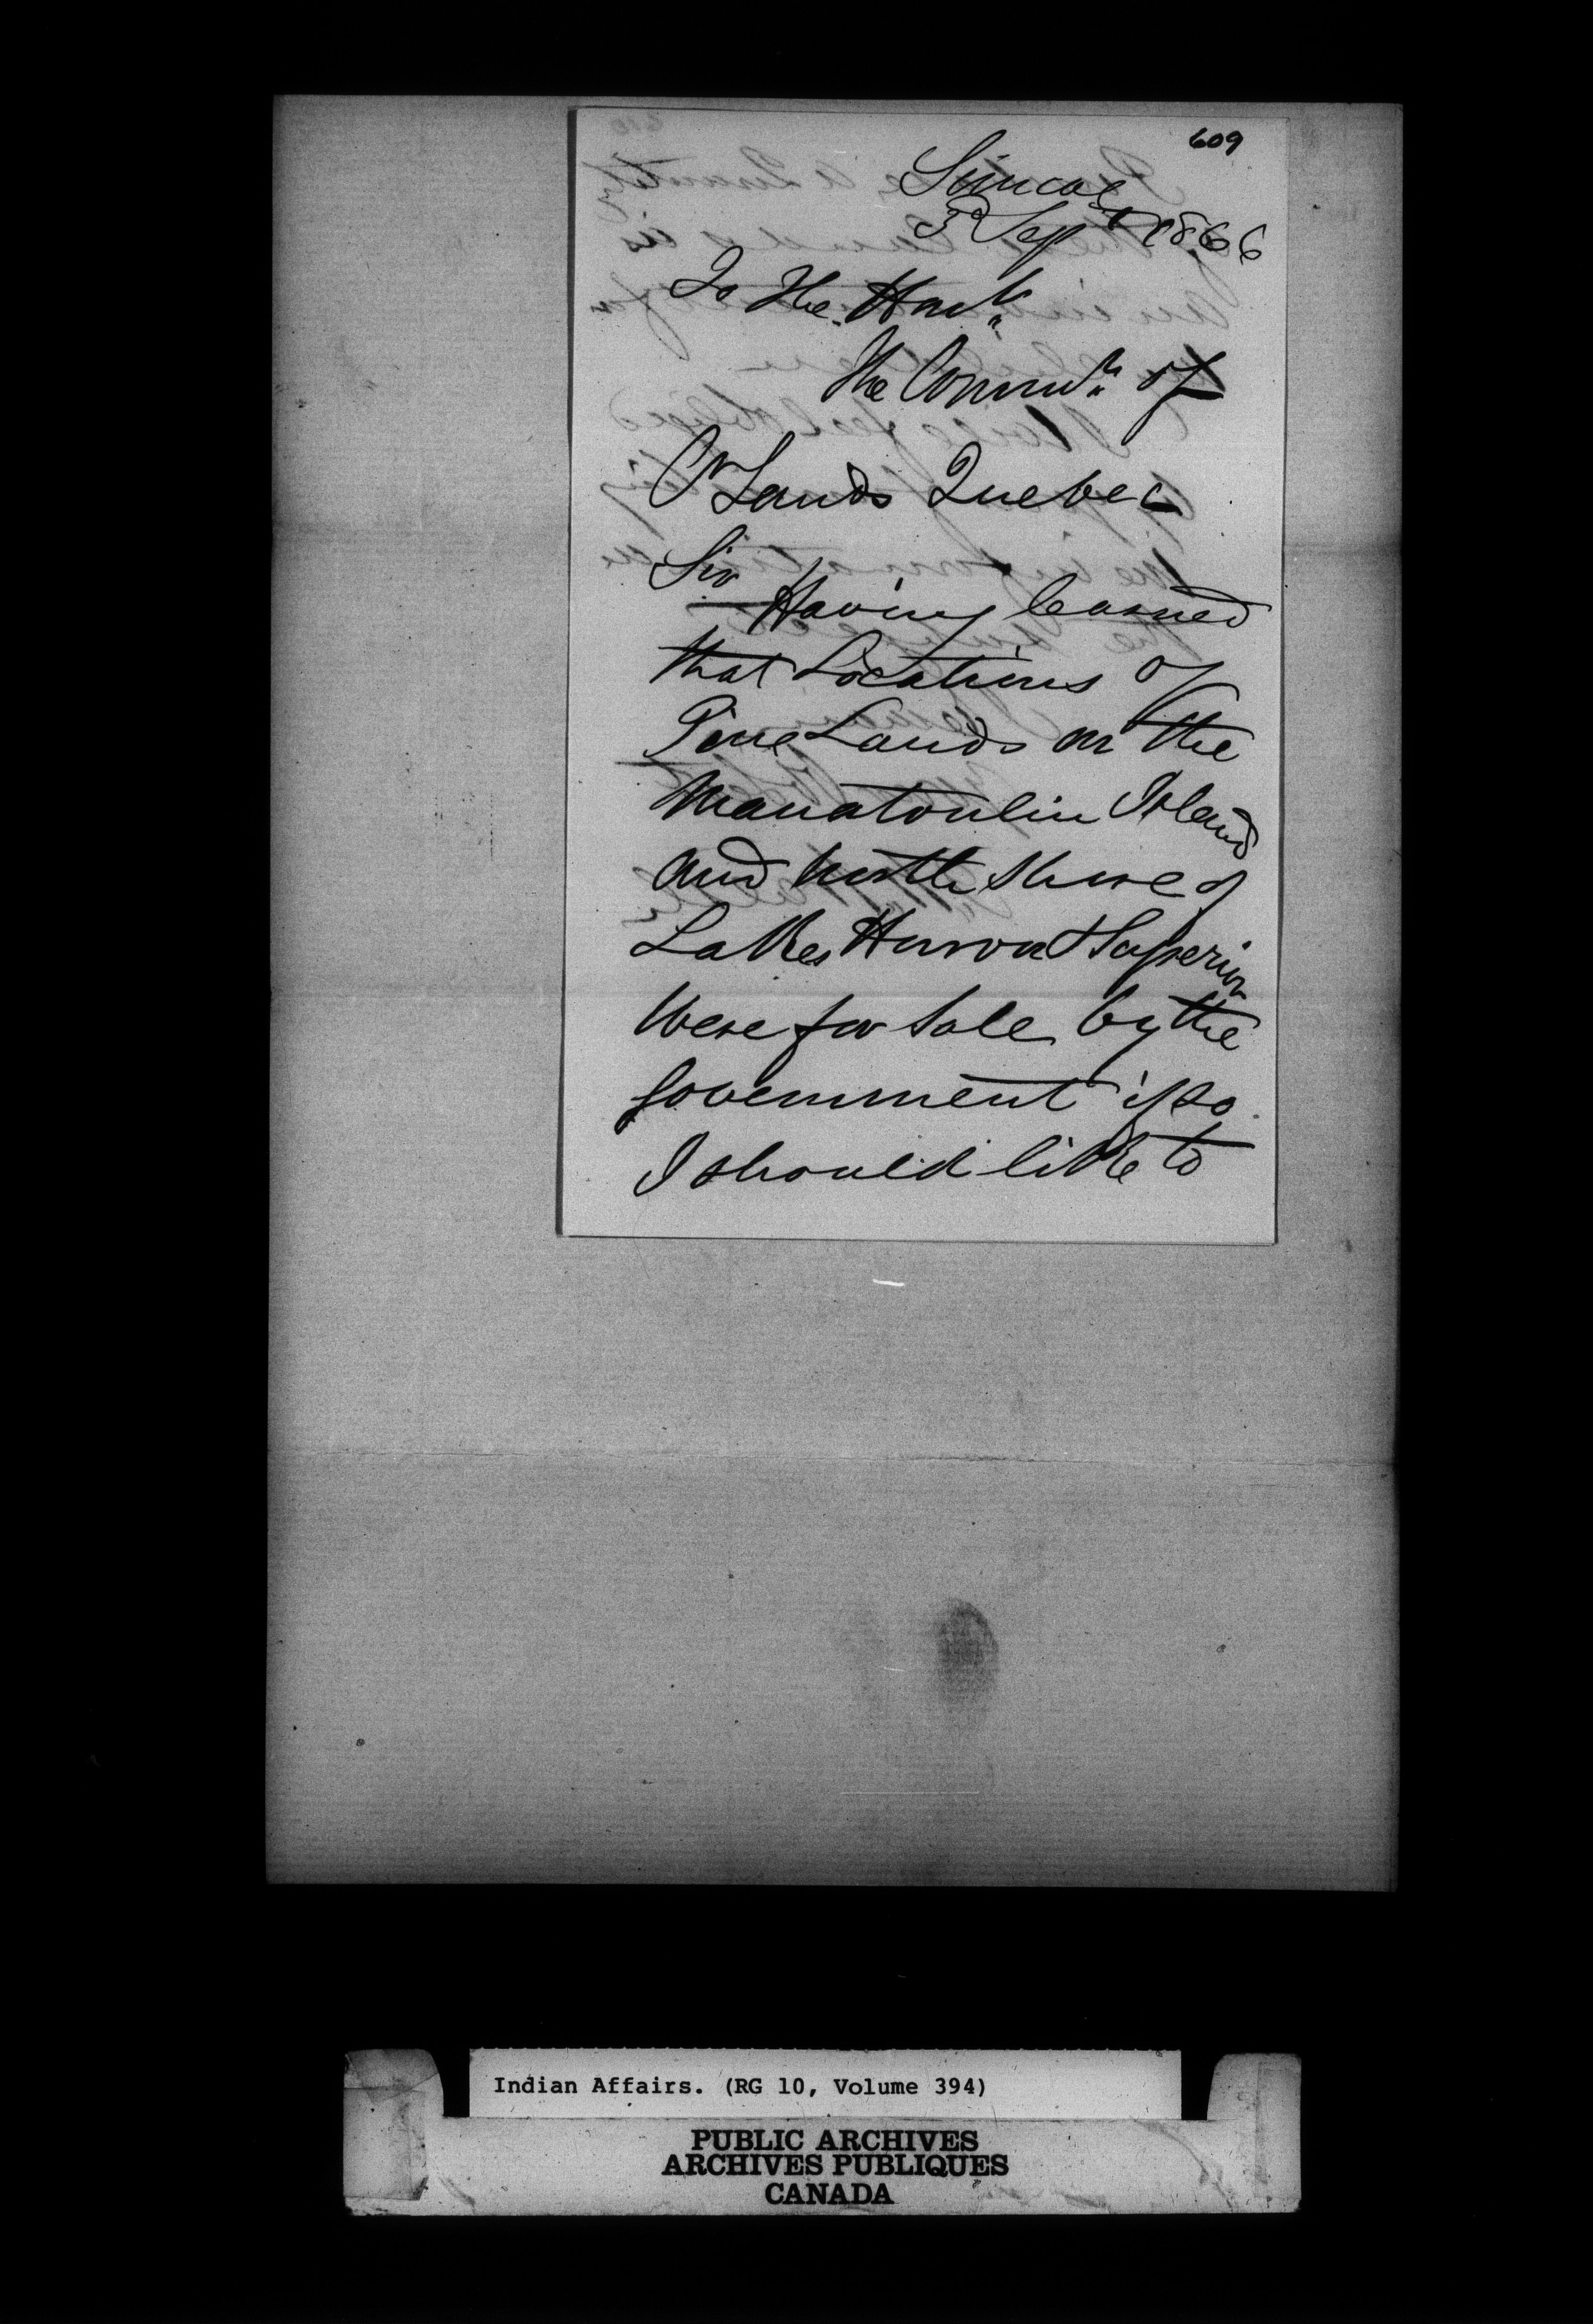 609
Simcoe
3d Sept 1866
To The Honl.
The Commr. of
Cn Lands Quebec
Sir
Having learned
that Locations of
Pine Lands on the
Manatoulin Island
and north shore of
Lakes Huron & Superior
Were for sale by the
Government if so
I should like to
Indian Affairs. (RG 10, Volume 394)
PUBLIC ARCHIVES
ARCHIVES PUBLIQUES
CANADA